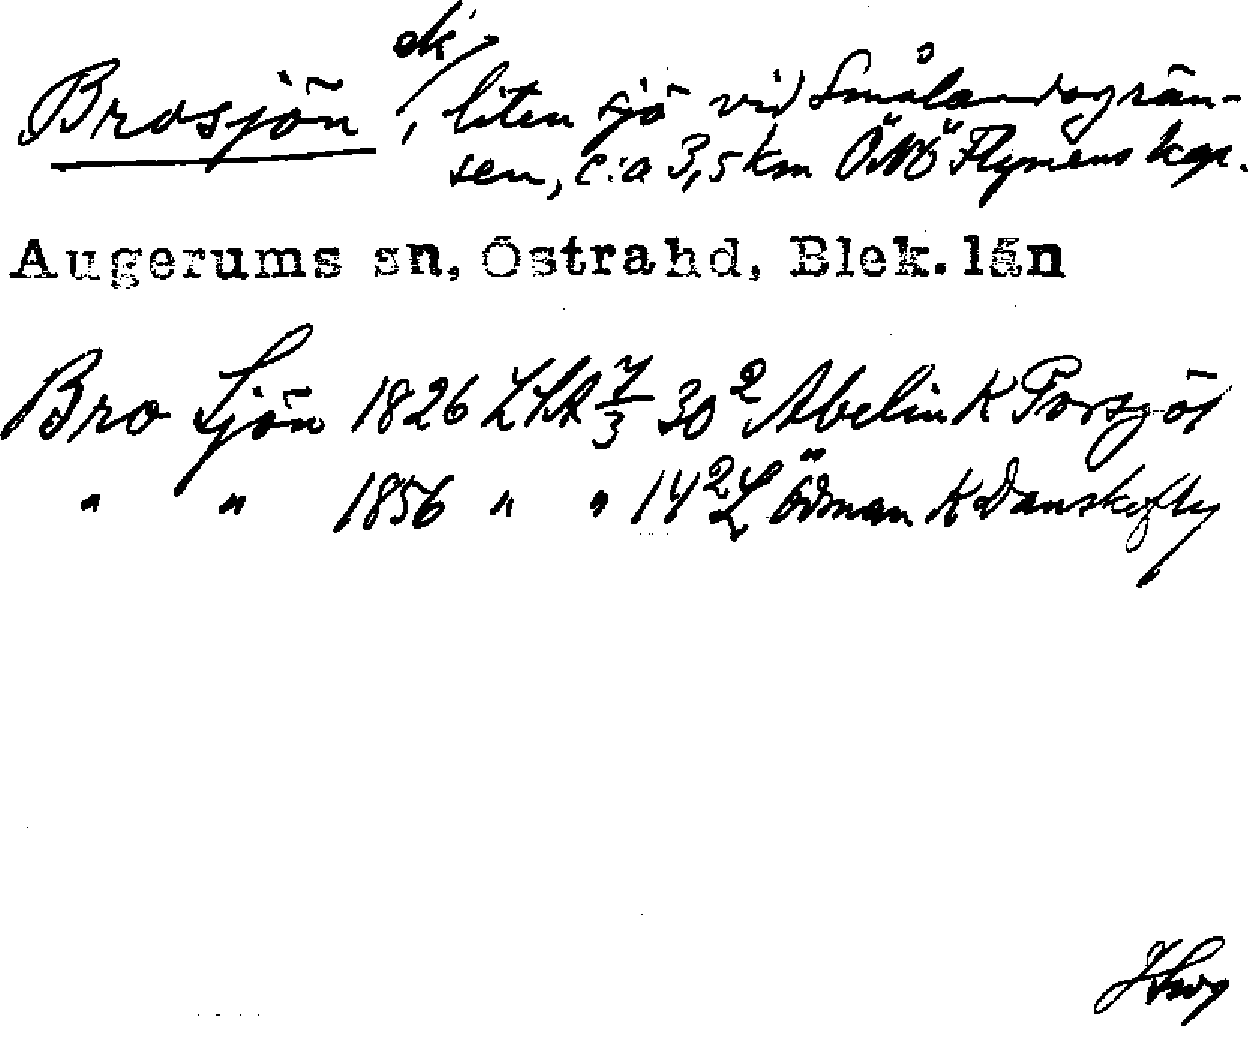 ek
Brosjön, liten sjö vid Smålandsgrän-
sen, c:a 3,5 km ÖNÖ Flymens kap.
Augerums sn, Östra hd, Blek. län
Bro Sjön 1826 LSA 7/3 30² Abelin K Porsgöl
" " 1856 " " 14² L Ödman K Danskefly